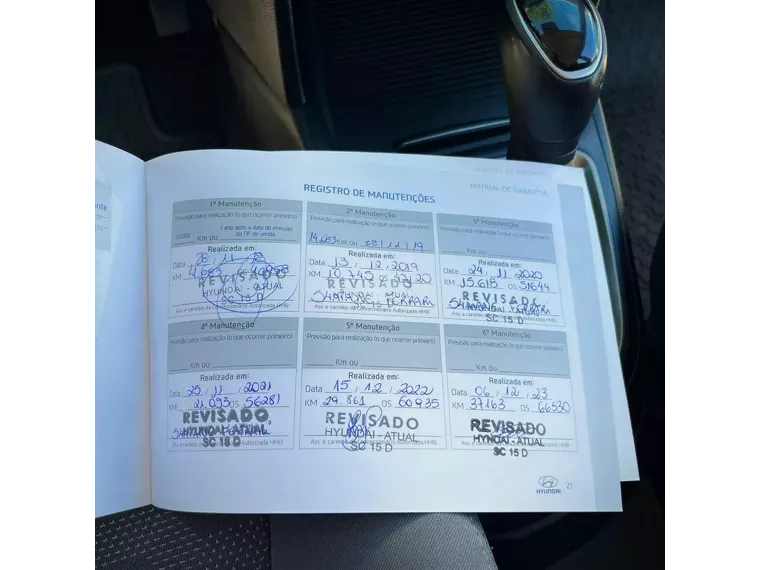 MANUAL DE GARANTIA
REGISTRO DE MANUTENÇÕES
1ª Manutenção
Previsão para realização (o que ocorrer primeiro)
10.000 Km ou 1 ano após a data de emissão da NF de venda
Realizada em:
Data 28, 11,
KM 4.683 OS
REVISADO
HYUNDAI - ATUAL
SC 15 D
2ª Manutenção
Previsão para realização (o que ocorrer primeiro)
14.683 Km ou 28, 11, 19
Realizada em:
Data 13, 12, 2019
KM 10.745 OS
REVISADO
3ª Manutenção
Previsão para realização (o que ocorrer primeiro)
Km ou
Realizada em:
Data 24, 11, 2020
KM 15.618 OS 51644
REVISADO
SC 15 D
4ª Manutenção
Previsão para realização (o que ocorrer primeiro)
Km ou
Realizada em:
Data 25, 11, 2021
KM 21.093 OS 56281
REVISADO
HYUNDAI - ATUAL
SC 15 D
5ª Manutenção
Previsão para realização (o que ocorrer primeiro)
Km ou
Realizada em:
Data 15, 12, 2022
KM 29.861 OS 60935
REVISADO
HYUNDAI - ATUAL
SC 15 D
6ª Manutenção
Previsão para realização (o que ocorrer primeiro)
Km ou
Realizada em:
Data 06, 12, 23
KM 37163 OS 66530
REVISADO
HYUNDAI - ATUAL
SC 15 D
HYUNDAI
21